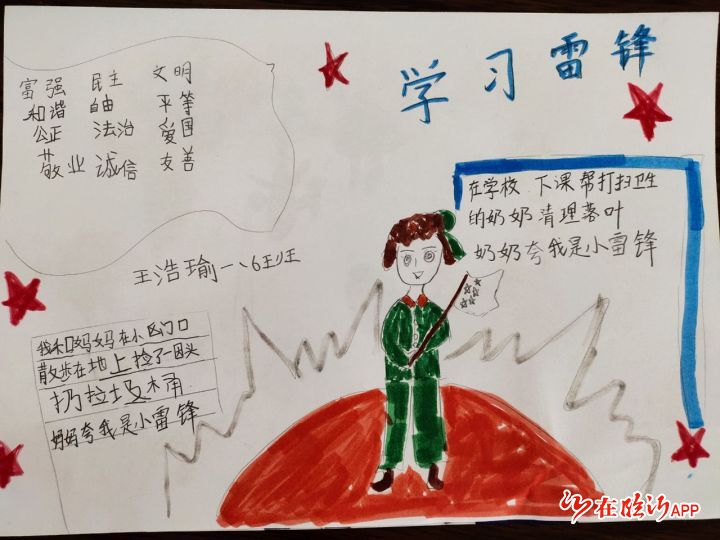 学习雷锋
富强 民主 文明
和谐 自由 平等
公正 法治 爱国
敬业 诚信 友善
在学校 下课帮打扫卫生
的奶奶清理落叶
奶奶夸我是小雷锋
王浩瑜一、6班
我和妈妈在小区门口
散步在地上捡了一因头
扔垃圾桶
妈妈夸我是小雷锋
在临沂APP